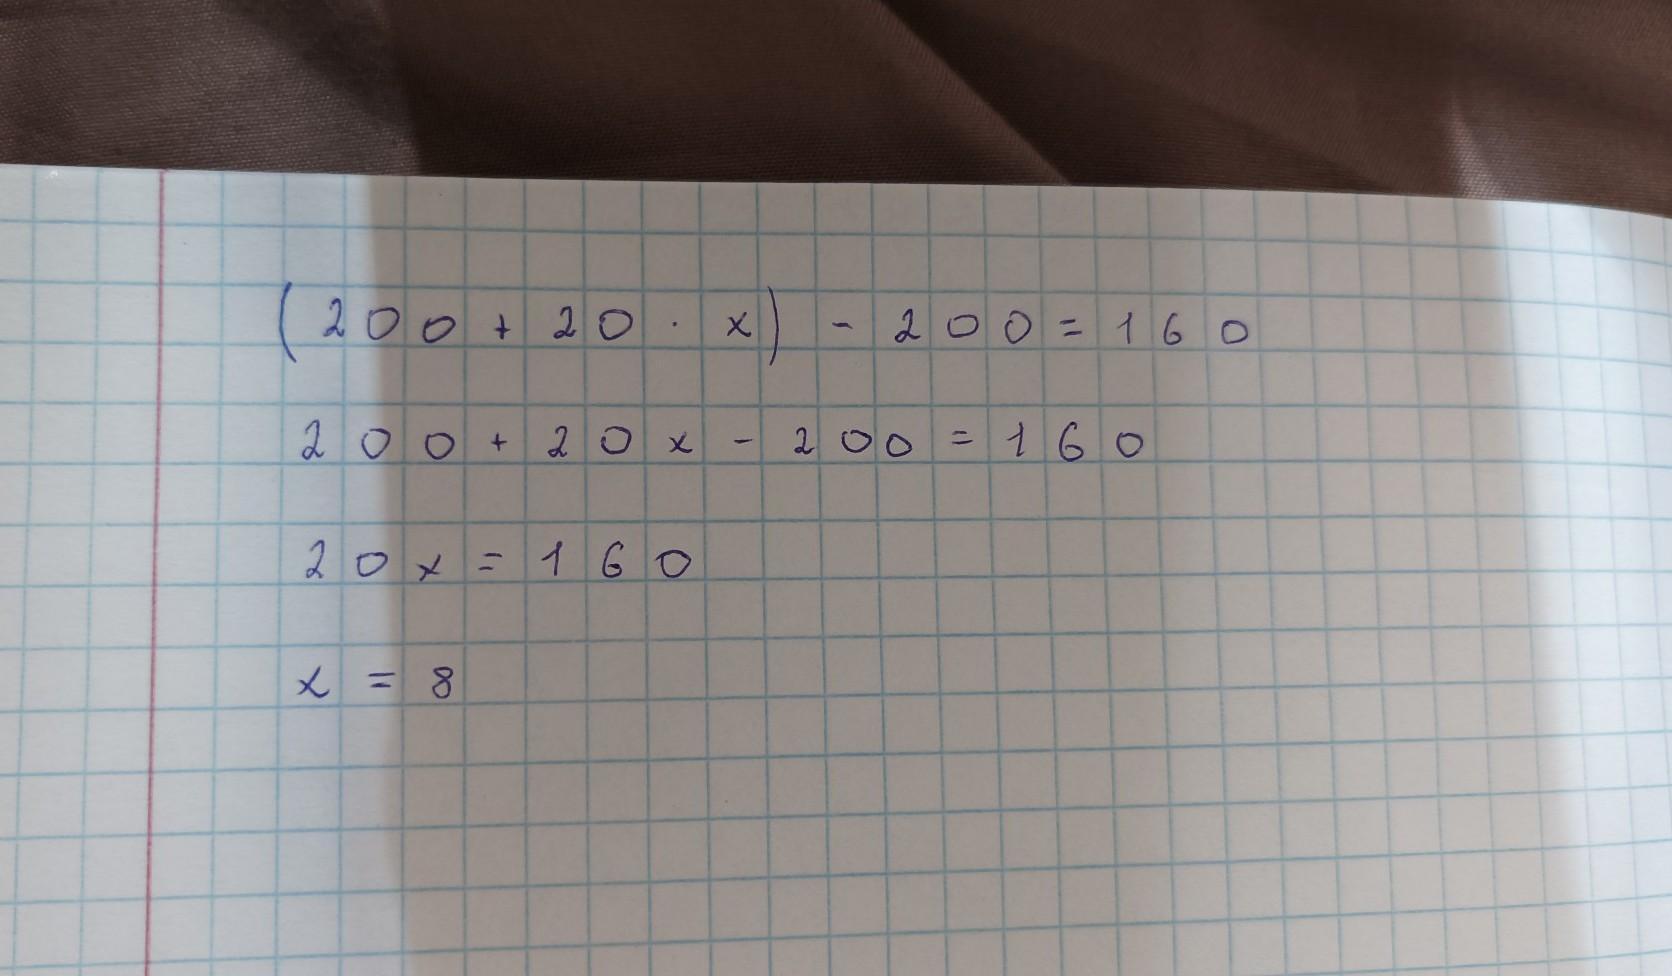 (200+20·x)-200=160
200+20x-200=160
20x=160
x=8